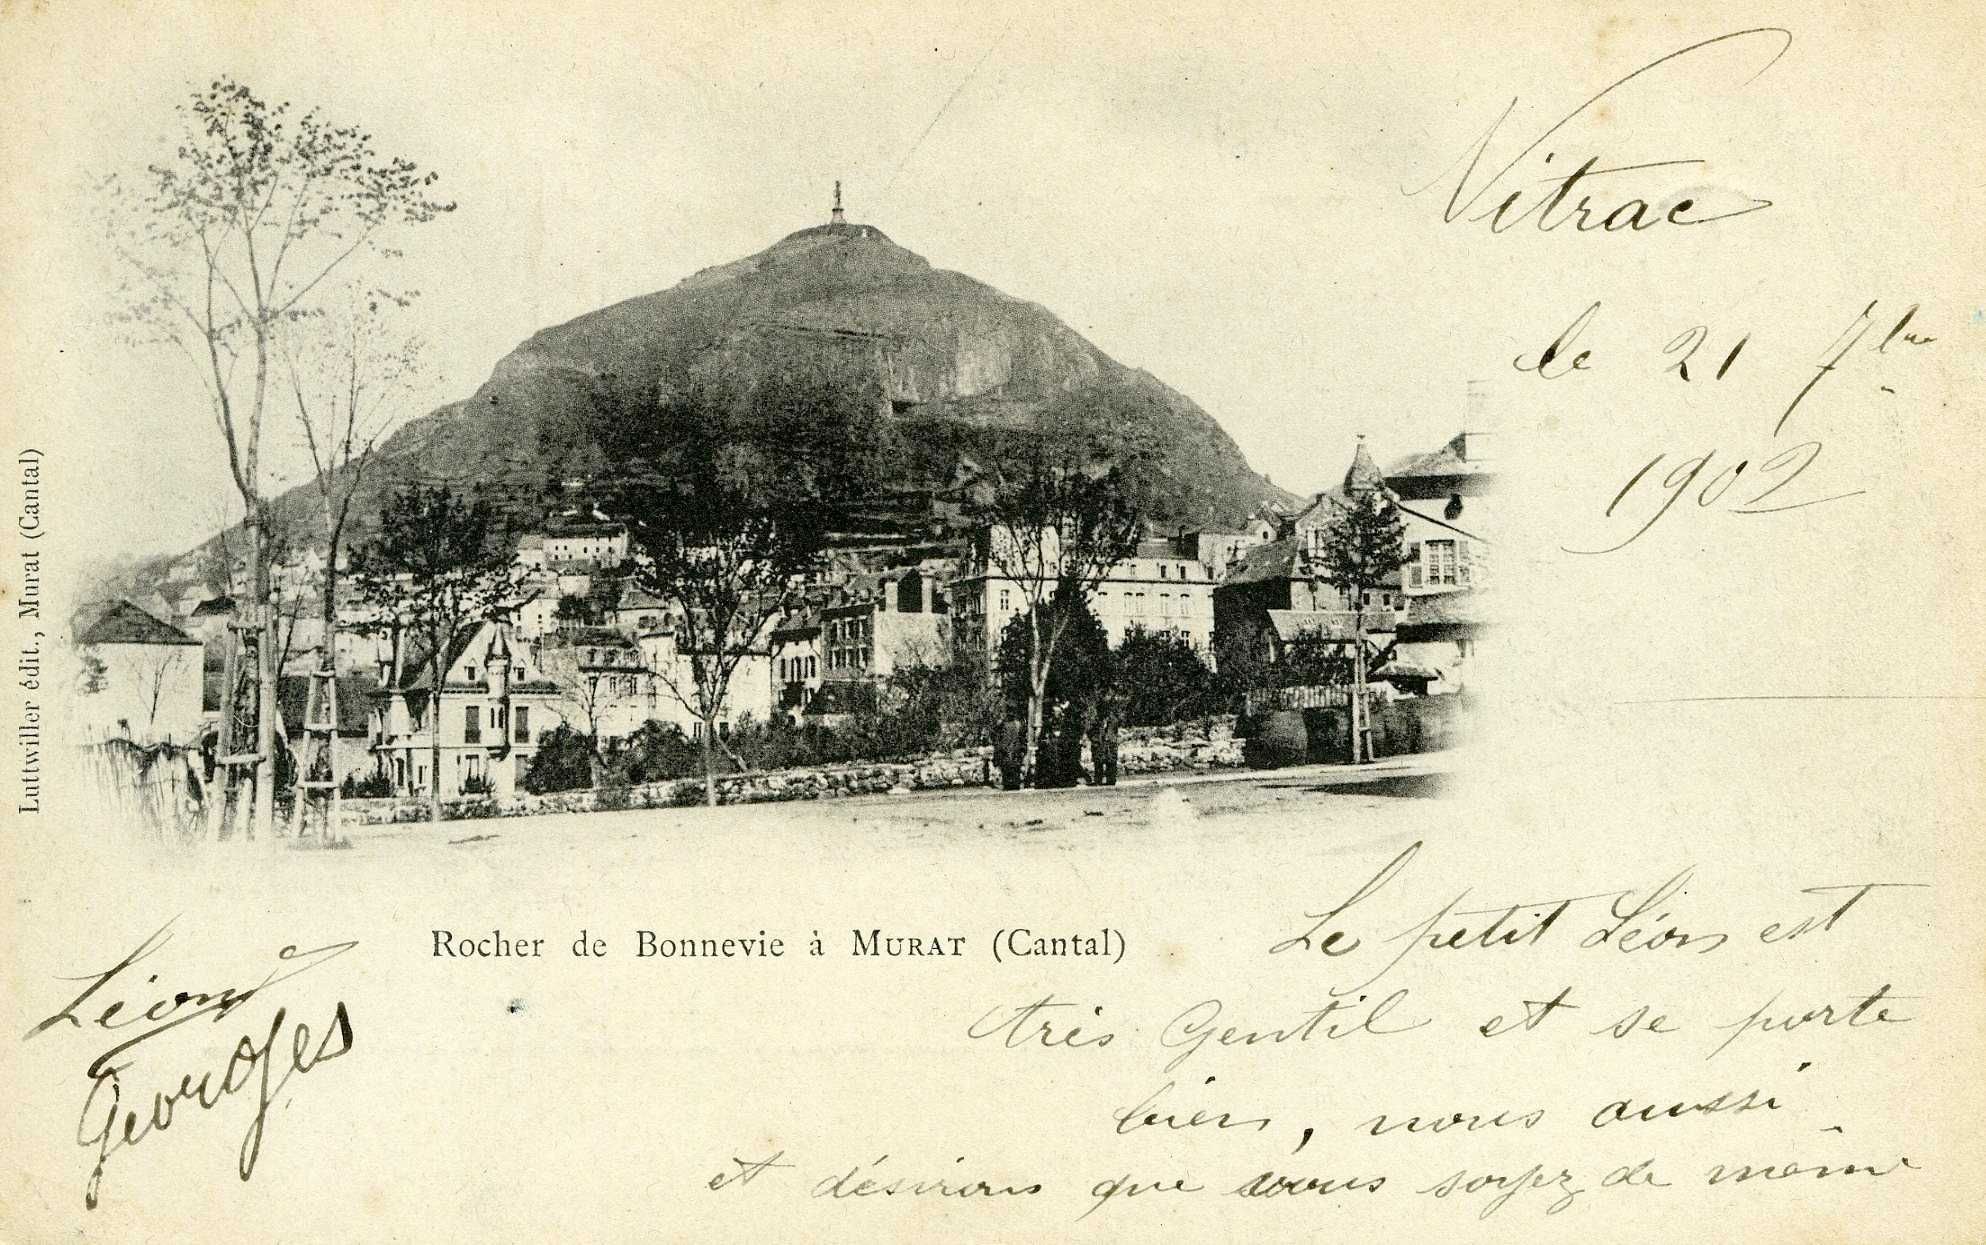 Vitrac
le 21 7bre
1902
Luttwiller édit., Murat (Cantal)
Rocher de Bonnevie à MURAT (Cantal)
Le petit Léon est
très Gentil et se porte
bien, nous aussi
et désirons que vous soyez de même
Léon
Georges